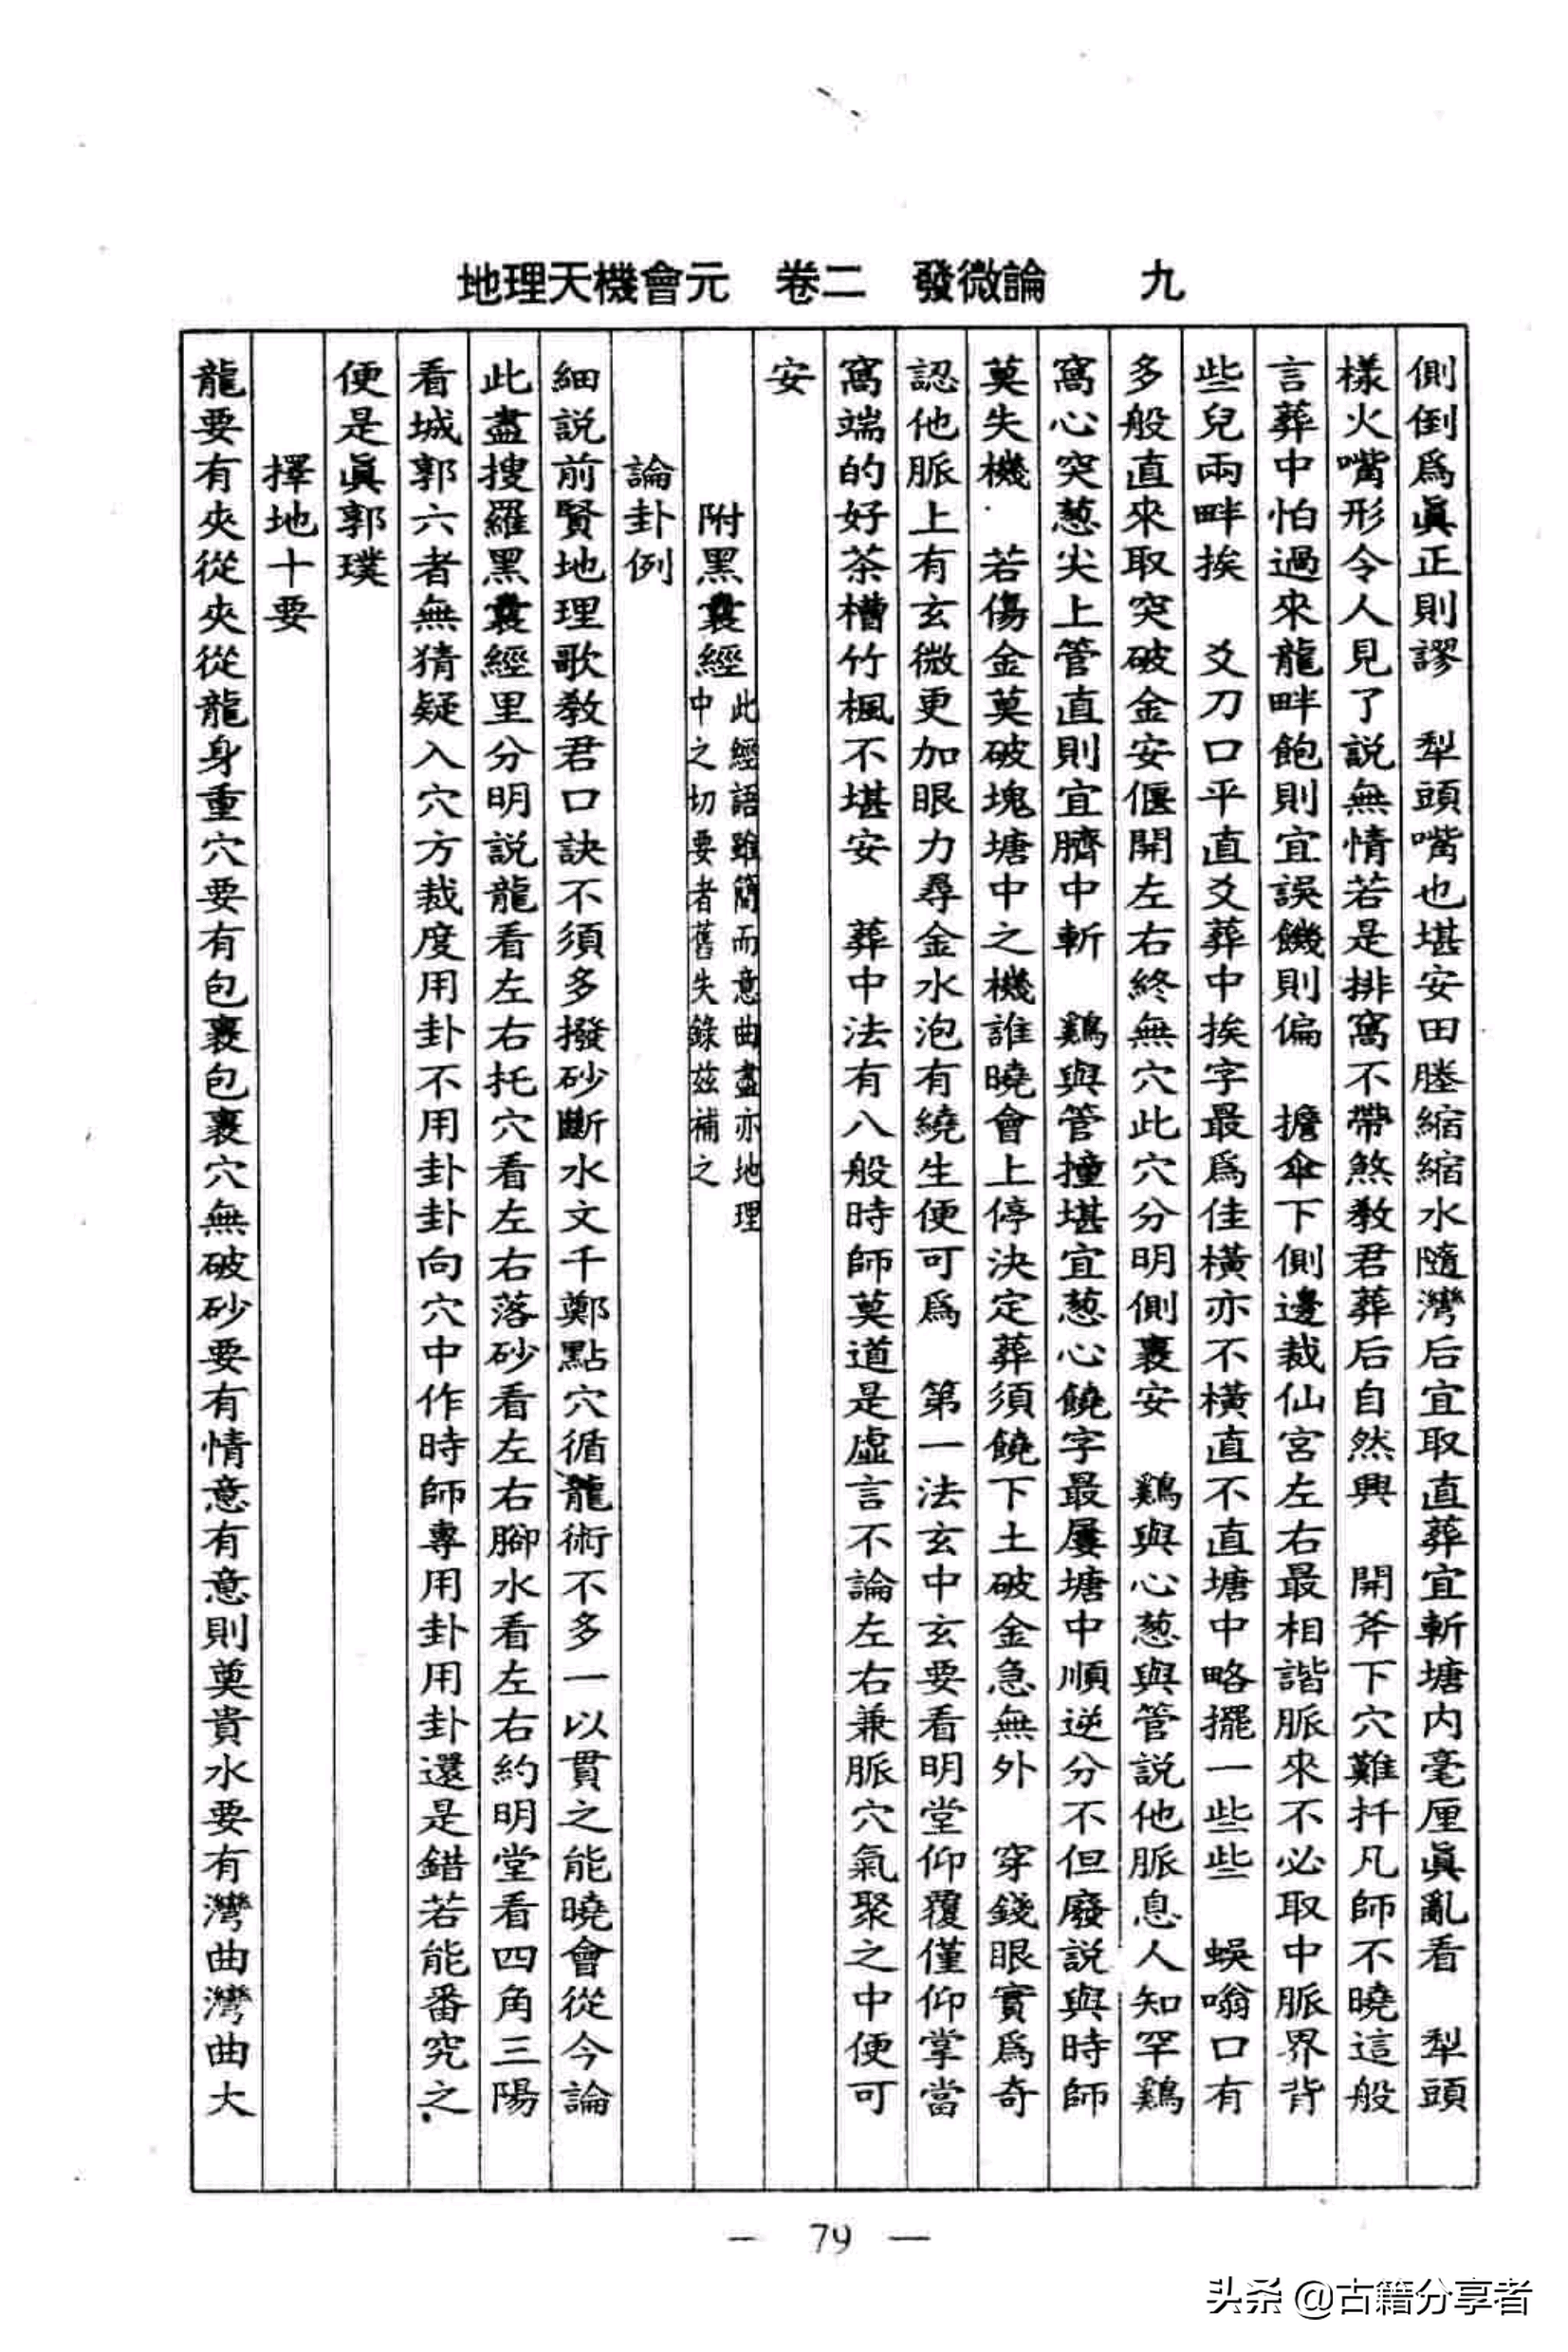 地理天機會元　卷二　發微論　　九
側倒爲眞正則謬　犁頭嘴也堪安田塍縮縮水隨灣后宜取直葬宜斬塘内毫厘眞亂看　犁頭
樣火嘴形令人見了説無情若是排窩不帶煞教君葬后自然興　開斧下穴難扦凡師不曉這般
言葬中怕過來龍畔飽則宜誤饑則偏　擔傘下側邊裁仙宮左右最相諧脈來不必取中脈界背
些兒兩畔挨　爻刀口平直爻葬中挨字最爲佳橫亦不橫直不直塘中略擺一些些　蜈嗡口有
多般直來取突破金安偃開左右終無穴此穴分明側裹安　鷄與心葱與管説他脈息人知罕鷄
窩心突葱尖上管直則宜臍中斬　鷄與管撞堪宜葱心饒字最屢塘中順逆分不但廢説與時師
莫失機　若傷金莫破塊塘中之機誰曉會上停決定葬須饒下土破金急無外　穿錢眼實爲奇
認他脈上有玄微更加眼力尋金水泡有繞生便可爲　第一法玄中玄要看明堂仰覆僅仰掌當
窩端的好茶槽竹楓不堪安　葬中法有八般時師莫道是虛言不論左右兼脈穴氣聚之中便可
安
附黑囊經
此經語雖簡而意曲盡亦地理
中之切要者舊失錄茲補之
論卦例
細説前賢地理歌教君口訣不須多撥砂斷水文千鄭點穴循龍術不多一以貫之能曉會從今論
此盡搜羅黑囊經里分明説龍看左右托穴看左右落砂看左右腳水看左右約明堂看四角三陽
看城郭六者無猜疑入穴方裁度用卦不用卦卦向穴中作時師專用卦用卦還是錯若能番究之
便是眞郭璞
擇地十要
龍要有夾從夾從龍身重穴要有包裹包裹穴無破砂要有情意有意則奠貴水要有灣曲灣曲大
— 79 —
头条 @古籍分享者